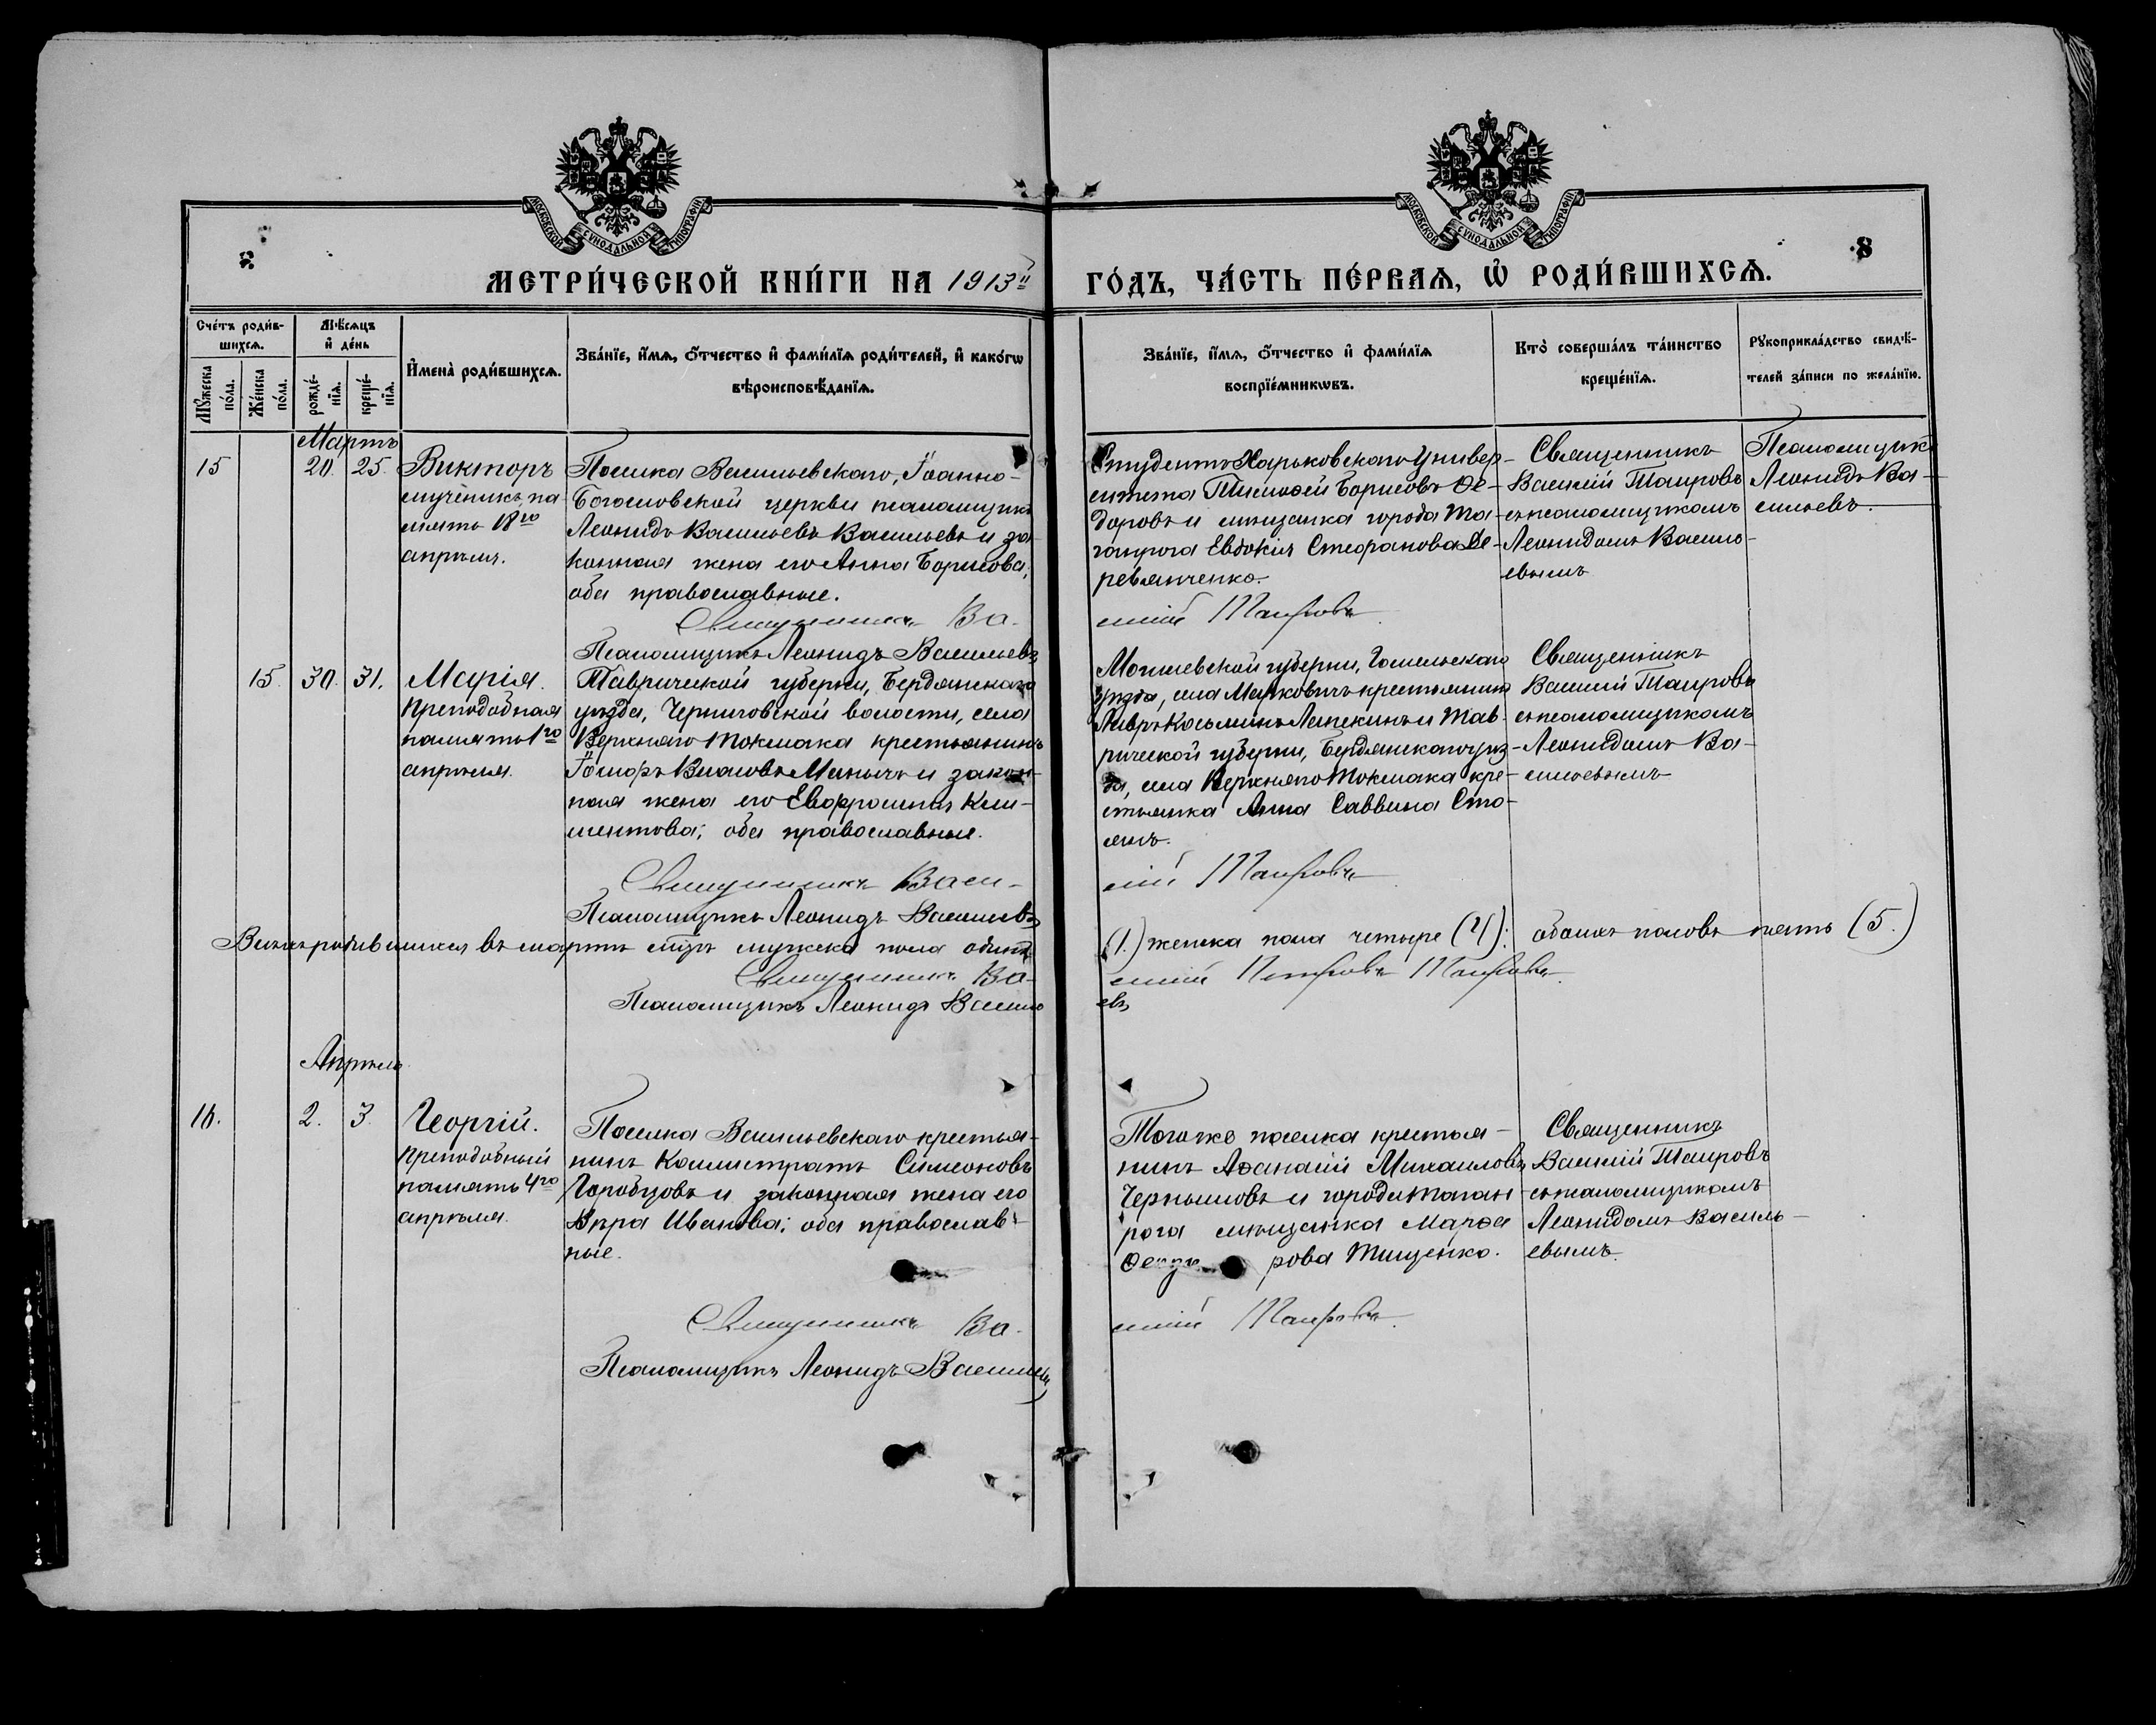 МОСКОВСКОЙ СѴНОДАЛЬНОЙ ТИПОГРАФІИ
МОСКОВСКОЙ СѴНОДАЛЬНОЙ ТИПОГРАФІИ
8
МЕТРИ́ЧЕСКОЙ КНИ́ГИ НА 1913й
ГО́ДЪ, ЧА́СТЬ ПЕ́РВАѦ, Ѡ҆ РОДИ́ВШИХСѦ.
Сче́тъ роди́в-
шихсѧ.
Мѣ́сѧцъ
и҆ де́нь
И҆мена̀ роди́вшихсѧ.
Зва́нїе, и҆́мѧ, ѻ҆́тчество и҆ фами́лїѧ роди́телей, и҆ како́гѡ
вѣроисповѣ́данїѧ.
Мꙋ́жеска по́ла.
Же́нска по́ла.
рожде́-
нїѧ.
креще́-
нїѧ.
Зва́нїе, и҆́мѧ, ѻ҆́тчество и҆ фами́лїѧ
воспрїе́мникѡвъ.
Кто̀ соверша́лъ та́инство
креще́нїѧ.
Рꙋкоприкла́дство свидѣ́-
телей за́писи по жела́нїю.
Мартъ
15
20.
25.
Викторъ
мученикъ па-
мять 18го
апрѣля.
Поселка Васильевскаго, Іоанно-
Богословской церкви псаломщикъ
Леонидъ Васильевъ Васильевъ и за-
конная жена его Анна Борисова;
оба православные.
Священникъ Ва-
Псаломщикъ Леонидъ Васильевъ
Студентъ Харьковскаго Универ-
ситета Тимоѳей Борисовъ Ѳе-
доровъ и мѣщанка города Та-
ганрога Евдокія Стефанова Де-
ревянченко.
силій Таировъ
Священникъ
Василій Таировъ
съ псаломщикомъ
Леонидомъ Василь-
евымъ
Псаломщикъ
Леонидъ Ва-
сильевъ.
15.
30.
31.
Марія.
Преподобная
память 1го
апрѣля.
Таврической губерніи, Бердянскаго
уѣзда, Черниговской волости, села
Верхняго Токмака крестьянинъ
Законная жена его Евфросинія Кли-
ментова; оба православные.
Священникъ Васи-
Псаломщикъ Леонидъ Васильевъ
Могилевской губерніи, Гомельскаго
уѣзда, села Марковичъ крестьянинъ
Лавръ Косьминъ Лапекинъ и Тав-
рической губерніи, Бердянскаго уѣз-
да, села Верхняго Токмака кре-
стьянка Анна Саввина Сто-
янъ.
лій Таировъ
Священникъ
Василій Таировъ
съ псаломщикомъ
Леонидомъ Ва-
сильевымъ
Всѣхъ родившихся въ мартѣ м-цѣ мужеска пола одинъ
(1.) женска пола четыре (4): обоихъ половъ пять (5.)
Священникъ Ва-
силій Петровъ Таировъ.
Псаломщикъ Леонидъ Василь
евъ
Апрѣль
16.
2.
3.
Георгій.
Преподобный
память 4го
апрѣля.
Поселка Васильевскаго крестья-
нинъ Каллистратъ Симеоновъ
Горобцовъ и законная жена его
Вѣра Иванова; оба православ-
ные.
Священникъ Ва-
Псаломщикъ Леонидъ Васильевъ
Того же поселка крестья-
нинъ Аѳанасій Михаиловъ
Чернышовъ и города Таган-
рога мѣщанка Марѳа
рова Тищенко.
силій Таировъ.
Священникъ
Василій Таировъ
съ псаломщикомъ
Леонидомъ Василь-
евымъ.